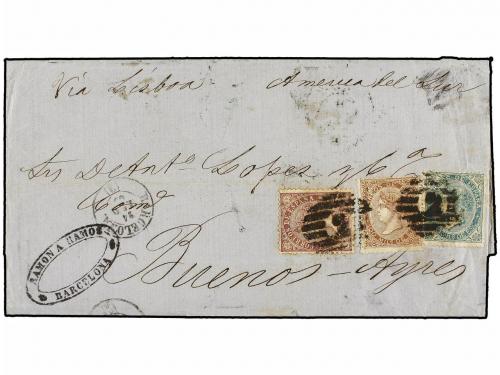 Via Lisboa America del Sur
Srs De Anto Lopes y Ca
Buenos-Ayres
RAMON A. RAMOS
BARCELONA
BARCELONA